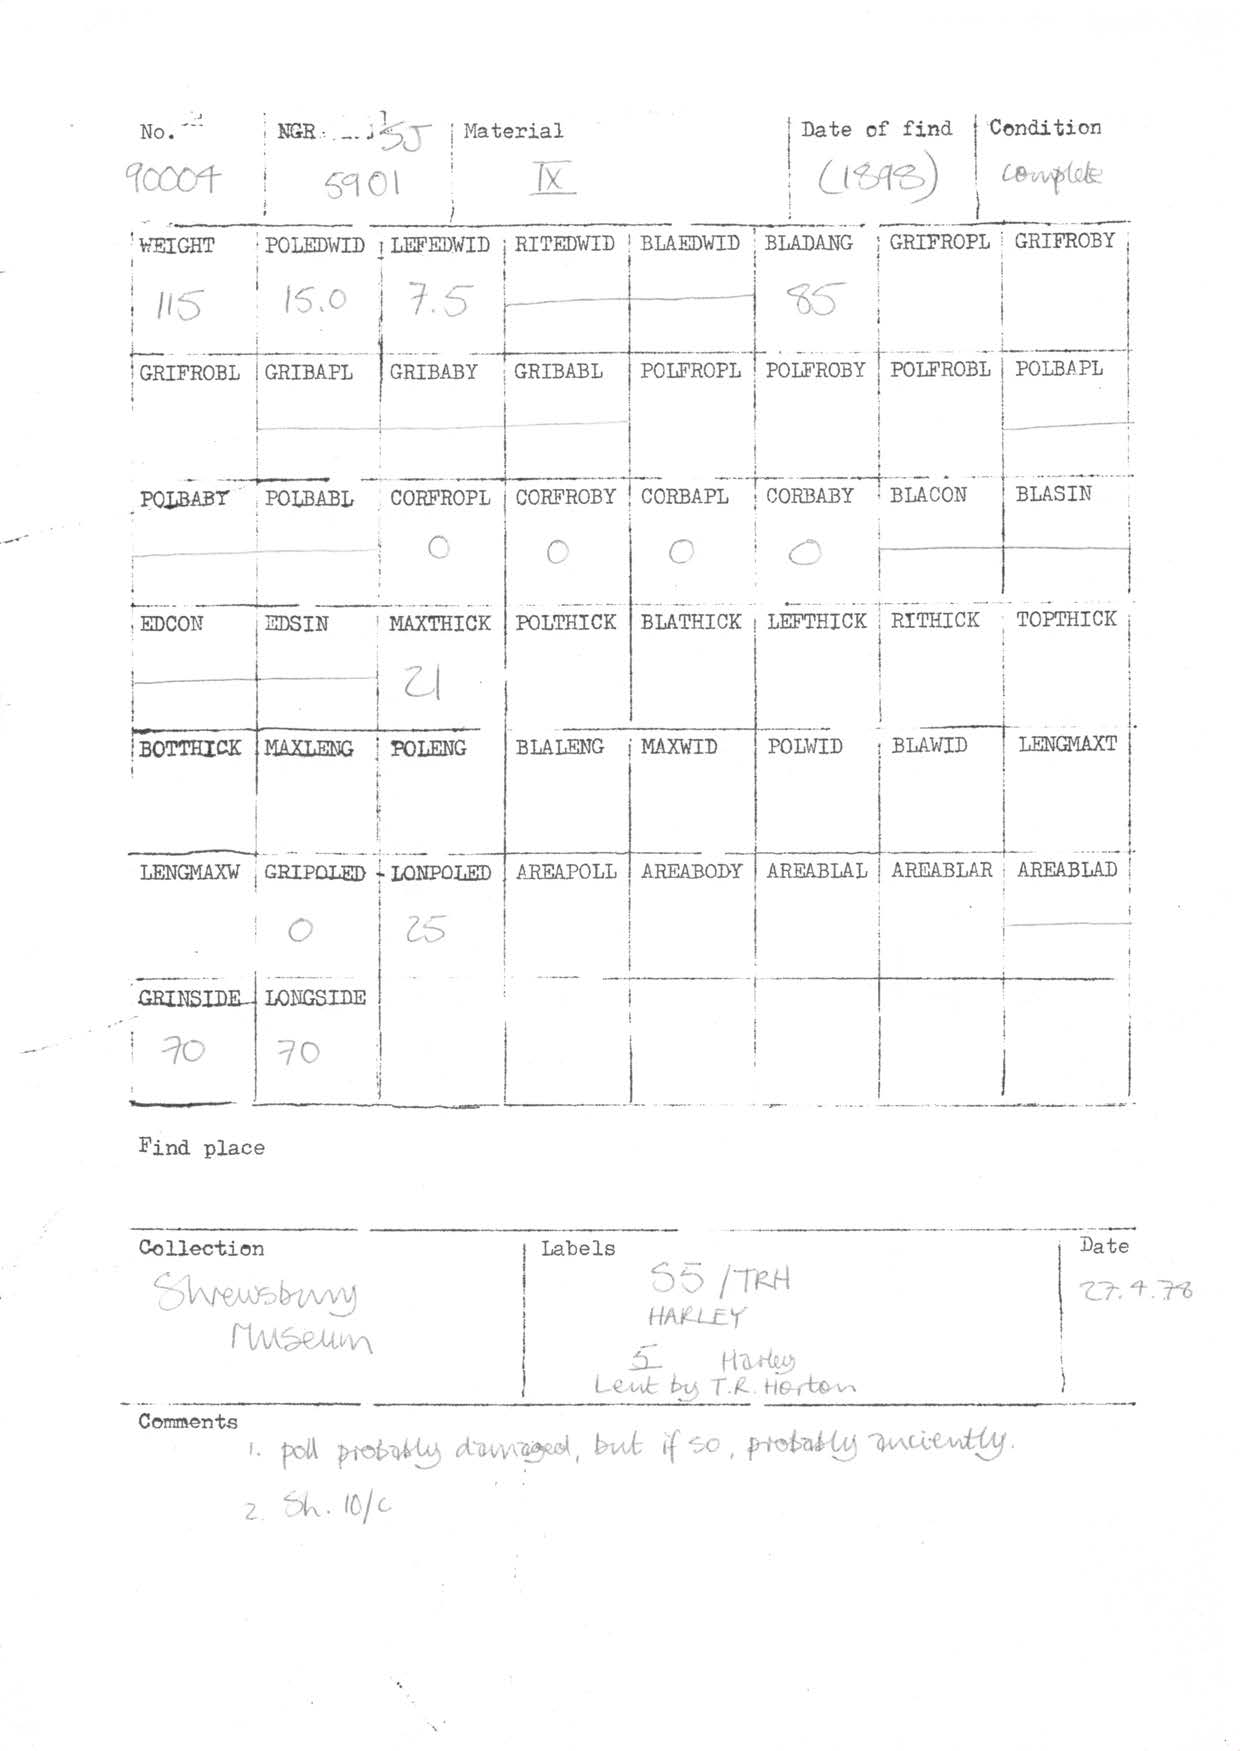 No. NGR SJ Material Date of find Condition
90004 5901 IX (1898) complete
WEIGHT POLEDWID LEFEDWID RITEDWID BLAEDWID BLADANG GRIFROPL GRIFROBY
115 15.0 7.5 85
GRIFROBL GRIBAPL GRIBABY GRIBABL POLFROPL POLFROBY POLFROBL POLBAPL
POLBABY POLBABL CORFROPL CORFROBY CORBAPL CORBABY BLACON BLASIN
0 0 0 0
EDCON EDSIN MAXTHICK POLTHICK BLATHICK LEFTHICK RITHICK TOPTHICK
21
BOTTHICK MAXLENG POLENG BLALENG MAXWID POLWID BLAWID LENGMAXT
LENGMAXW GRIPOLED LONPOLED AREAPOLL AREABODY AREABLAL AREABLAR AREABLAD
0 25
GRINSIDE LONGSIDE
70 70
Find place
Collection Labels Date
Shrewsbury
Museum
S5/TRH
HARLEY
5 Harley
Lent by T.R. Horton
27.4.78
Comments
1. poll probably damaged, but if so, probably anciently.
2. Sh. 10/c